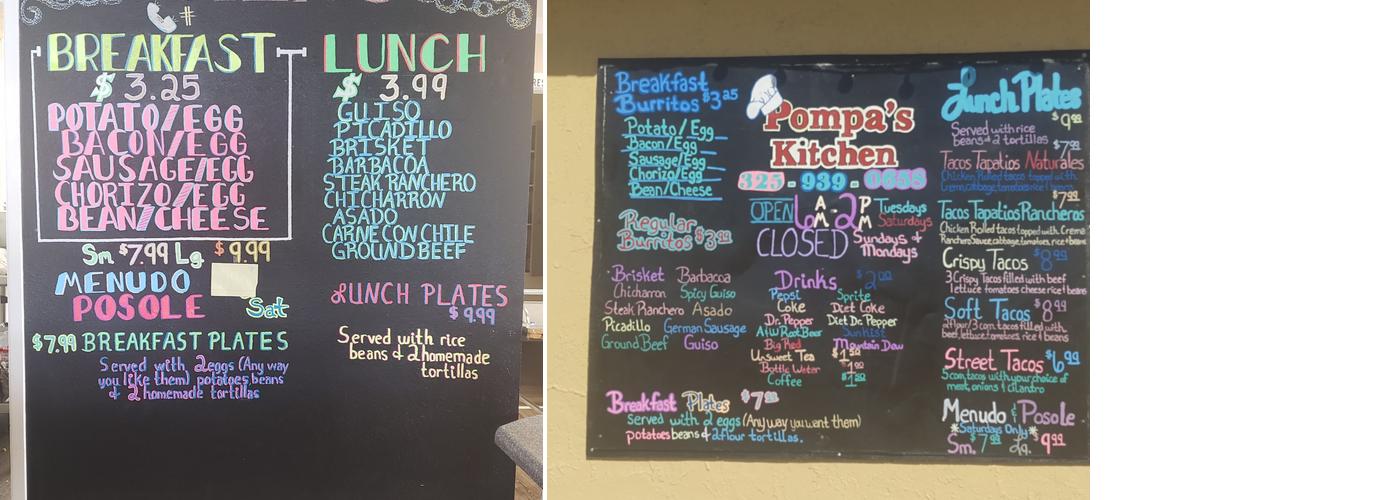 #
BREAKFAST
$ 3.25
POTATO/EGG
BACON/EGG
SAUSAGE/EGG
CHORIZO/EGG
BEAN/CHEESE
Sm $7.99 Lg $9.99
MENUDO
POSOLE
Sat
$7.99 BREAKFAST PLATES
Served with 2eggs (Any way
you like them) potatoes, beans
& 2 homemade tortillas
LUNCH
$ 3.99
GUISO
PICADILLO
BRISKET
BARBACOA
STEAK RANCHERO
CHICHARRON
ASADO
CARNE CON CHILE
GROUND BEEF
LUNCH PLATES
$ 9.99
Served with rice
beans & 2 homemade
tortillas
Breakfast
Burritos $3.25
Potato/Egg
Bacon/Egg
Sausage/Egg
Chorizo/Egg
Bean/Cheese
Regular
Burritos $3.99
Brisket Barbacoa
Chicharron Spicy Guiso
Steak Ranchero Asado
Picadillo German Sausage
Ground Beef Guiso
Breakfast Plates $7.99
served with 2 eggs (Any way you want them)
potatoes beans & 2 flour tortillas.
Pompa's
Kitchen
325-939-0658
OPEN 6AM-2PM Tuesdays
Saturdays
CLOSED Sundays &
Mondays
Drinks $2.00
Pepsi Sprite
Coke Diet Coke
Dr. Pepper Diet Dr. Pepper
A&W Root Beer Sunkist
Big Red Mountain Dew
Unsweet Tea $1.50
Bottle Water
Coffee
Lunch Plates
$9.99
Served with rice
beans & 2 tortillas
$7.99
Tacos Tapatios Naturales
Chicken Rolled tacos topped with
Crema, cabbage, tomatoes rice & beans
$7.99
Tacos Tapatios Rancheros
Chicken Rolled tacos topped with Crema
Ranchero Sauce, cabbage, tomatoes, rice & beans
Crispy Tacos $8.99
3 Crispy Tacos filled with beef
lettuce tomatoes cheese rice & beans
Soft Tacos $8.99
2 flour/3 corn tacos filled with
beef, lettuce, tomatoes, rice & beans
Street Tacos $6.99
5 corn tacos with your choice of
meat, onions & cilantro
Menudo & Posole
*Saturdays Only*
Sm. $7.99 Lg. $9.99